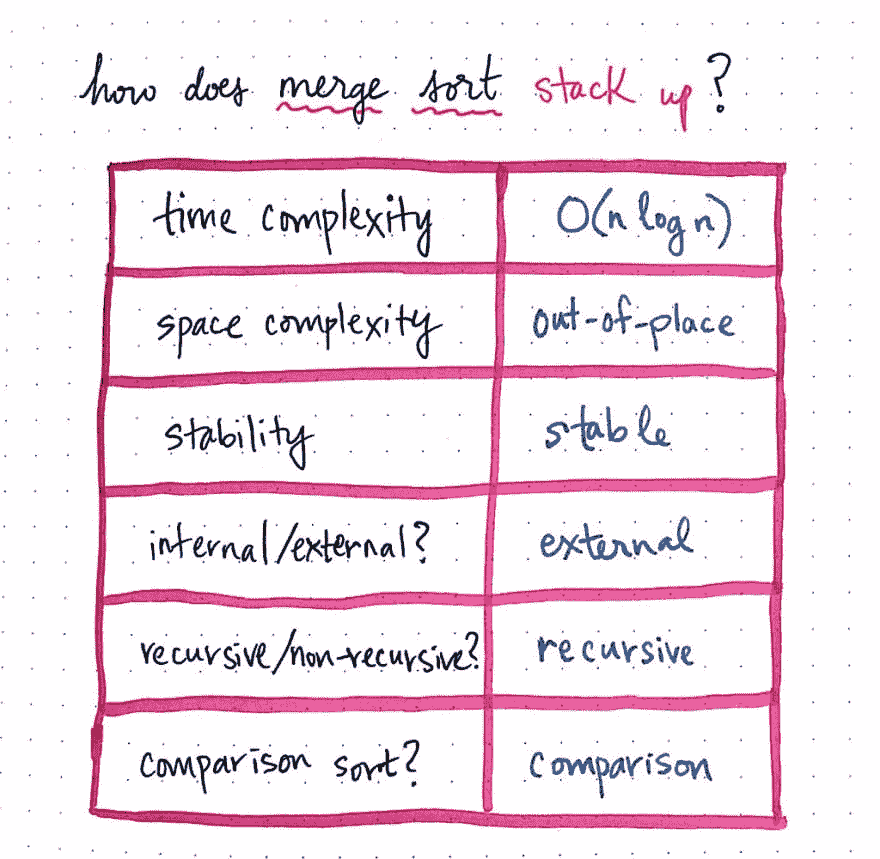 how does merge sort stack up?
time complexity O(n log n)
space complexity out-of-place
stability stable
internal/external? external
recursive/non-recursive? recursive
comparison sort? comparison